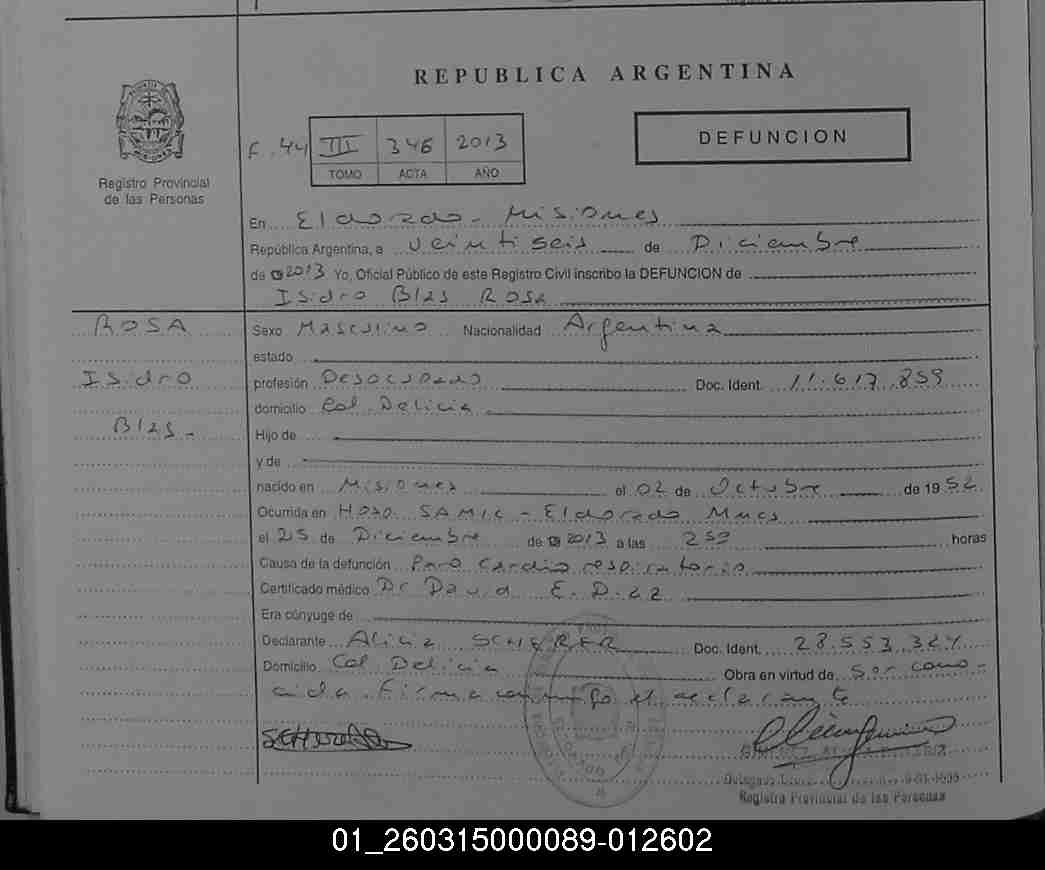 REPUBLICA ARGENTINA
DEFUNCION
F. 44 III 346 2013
TOMO ACTA AÑO
Registro Provincial
de las Personas
En Eldorado - Misiones
República Argentina, a veintiseis de Diciembre
de 2013 Yo, Oficial Público de este Registro Civil inscribo la DEFUNCION de
Isidro Blas Rosa
ROSA
Isidro
Blas -
Sexo Masculino Nacionalidad Argentina
estado
profesión Desocupado Doc. Ident. 11.617.859
domicilio Col. Delicia
Hijo de
y de
nacido en Misiones el 02 de Octubre de 1952
Ocurrida en Hosp. SAMIC - Eldorado Mnes
el 25 de Diciembre de 2013 a las horas
Causa de la defunción Paro cardio respiratorio
Certificado médico Dr David E. Diaz
Era cónyuge de
Declarante Alicia SCHERER Doc. Ident. 28.553.324
Domicilio Col Delicia Obra en virtud de ser cono-
cida. Firma conmigo el declarante
Registro Provincial de las Personas
01_260315000089-012602